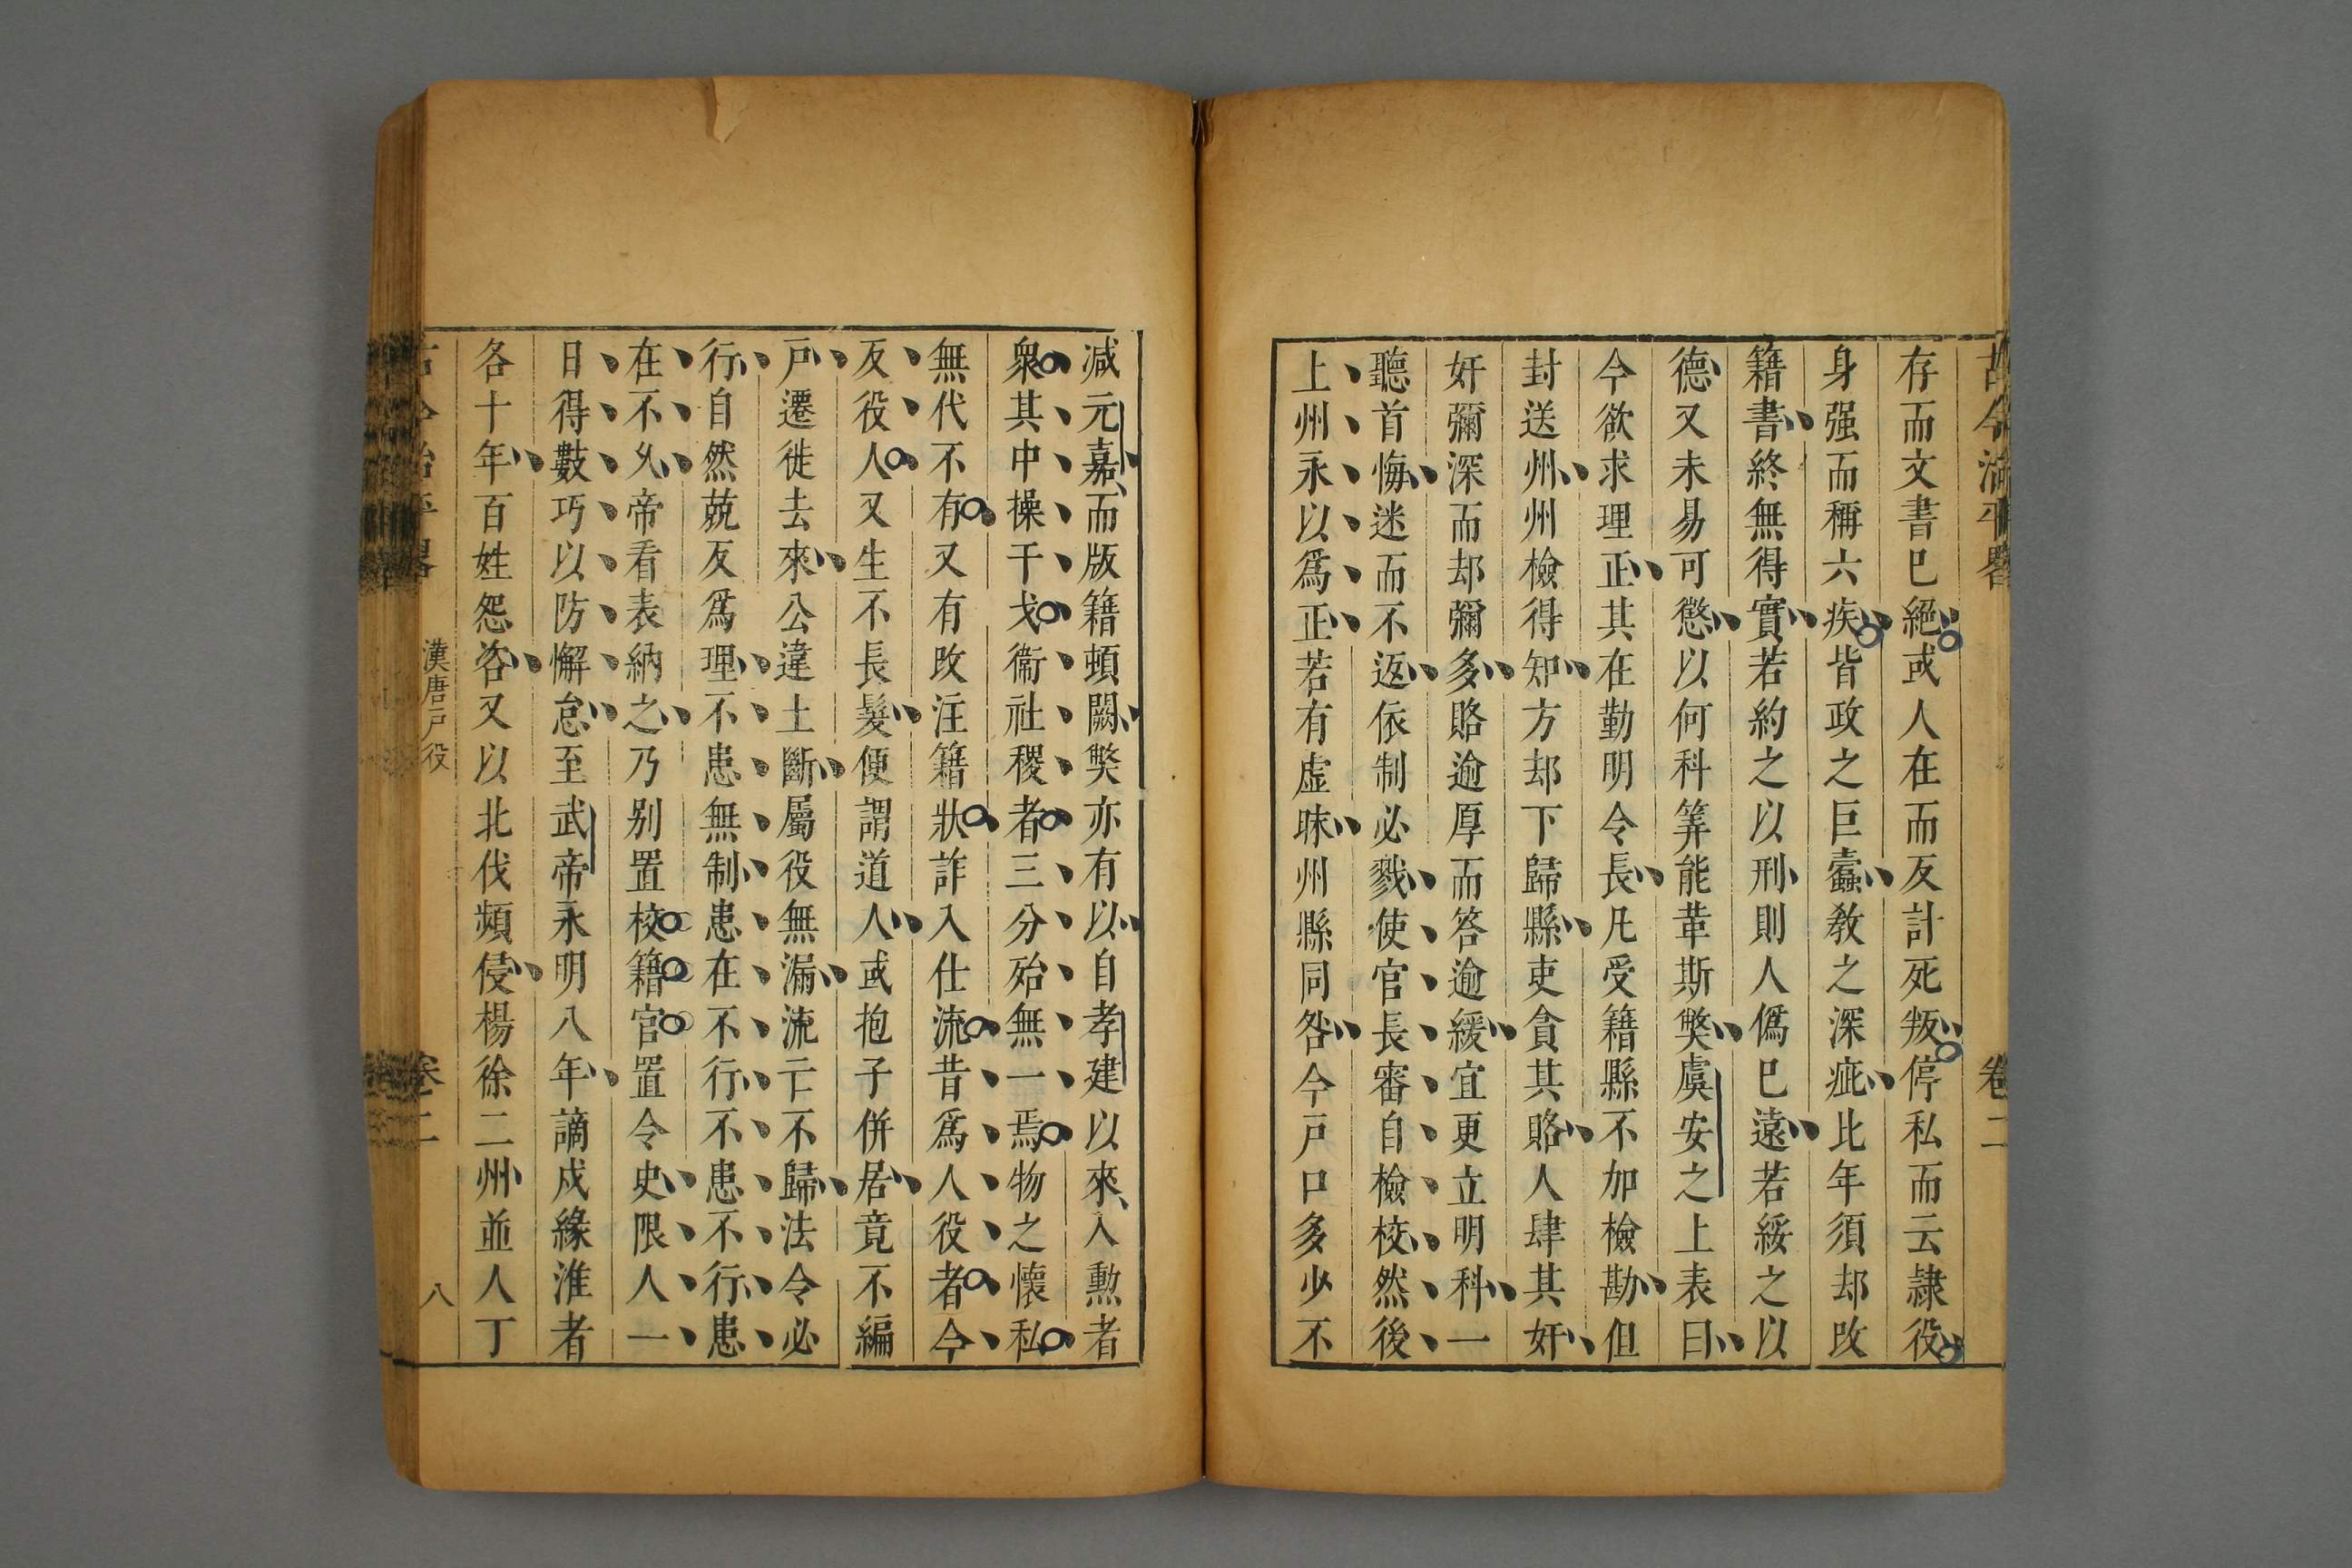 存而文書巳絕或人在而反計死叛停私而云隷役
身强而稱六疾皆政之巨蠹敎之深疵比年須却攺
籍書終無得實若約之以刑則人僞巳遠若綏之以
德又未易可懲以何科筭能革斯獘虞安之上表曰
今欲求理正其在勤明令長凡受籍縣不加檢勘但
封送州州檢得知方却下歸縣吏貪其賂人肆其奸
奸彌深而却彌多賂逾厚而答逾緩宜更立明科一
聽首悔迷而不返依制必戮使官長審自檢校然後
上州永以爲正若有虛昧州縣同咎今戸口多少不
减元嘉而版籍頓闕獘亦有以自孝建以來入勲者
衆其中操干戈衞社稷者三分殆無一焉物之懷私
無代不有又有攺注籍狀詐入仕流昔爲人役者今
反役人又生不長髮便謂道人或抱子併居竟不編
戸遷徙去來公違土斷屬役無漏流亡不歸法令必
行自然兢反爲理不患無制患在不行不患不行患
在不久帝看表納之乃别置校籍官置令史限人一
日得數巧以防懈怠至武帝永明八年謫戍緣淮者
各十年百姓怨咨又以北伐頻侵楊徐二州並人丁
古今治平畧
漢唐戸役
卷二
八